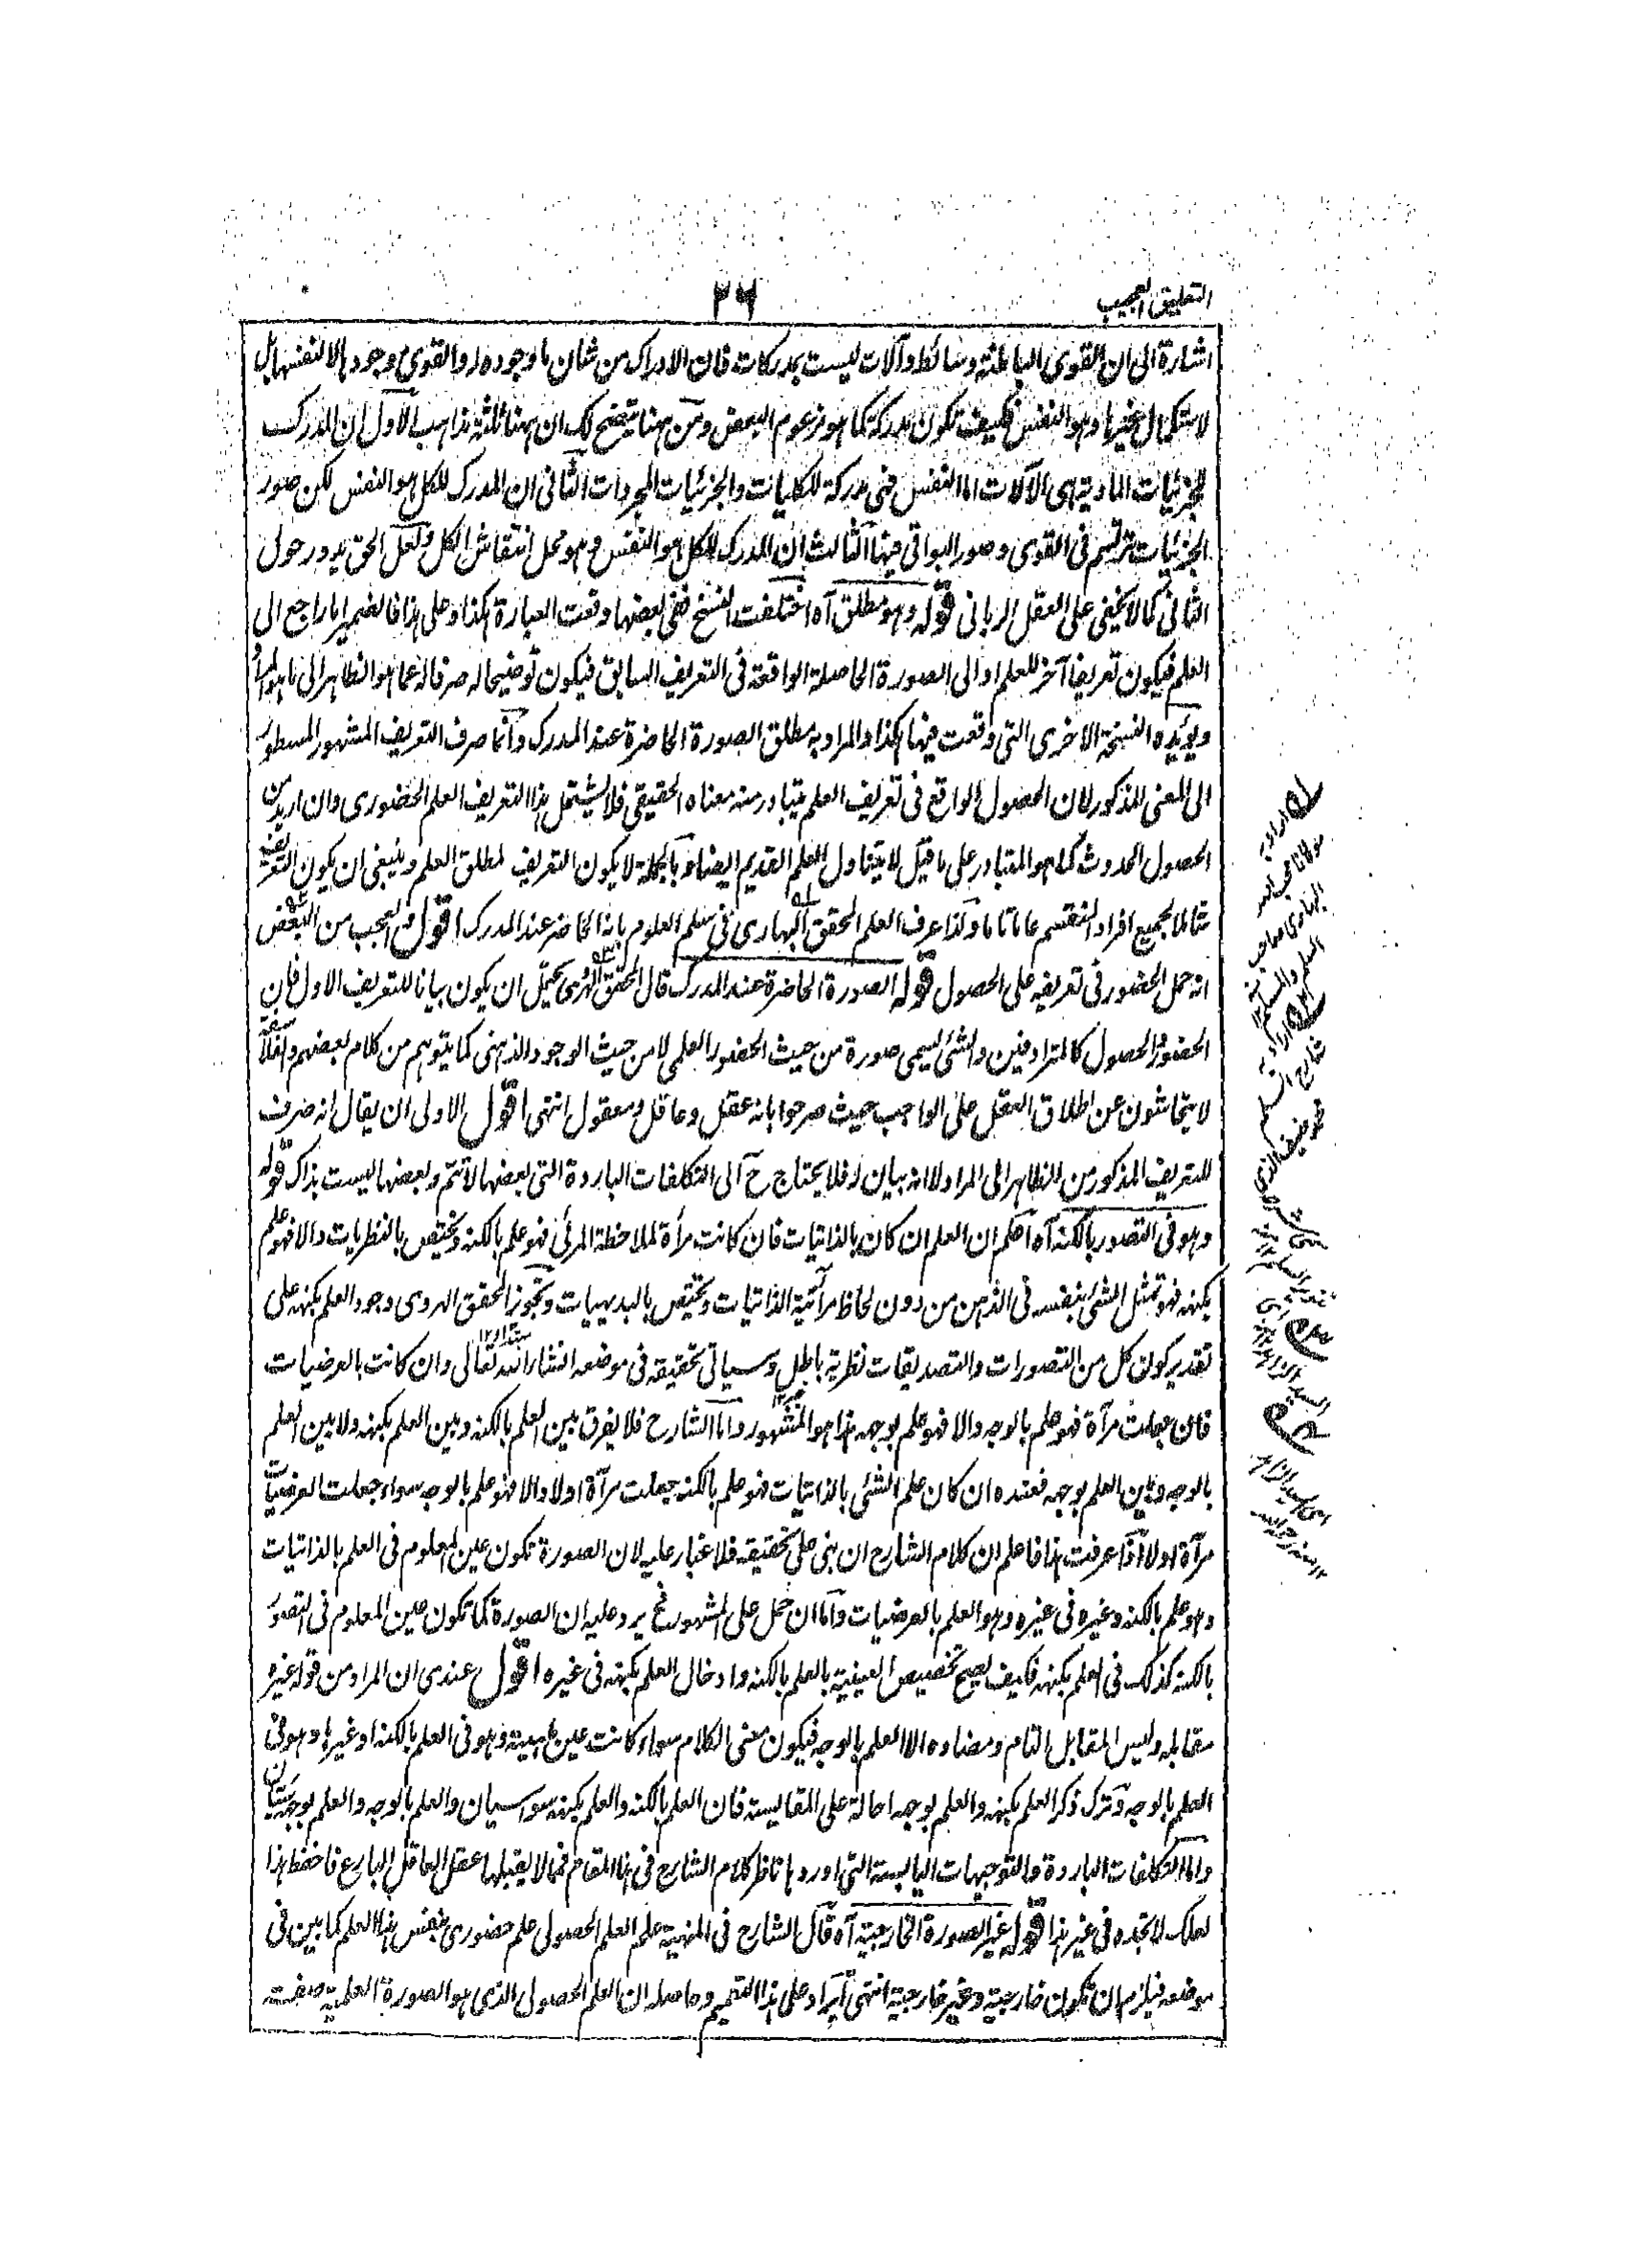 التعليق العجيب
٣٦
اشارة الى ان القوى الباطنة وسائط وآلات ليست بمدركات فان الادراك من شان ما وجوده له والقوى وجودها لا لنفسها بل
لاستكمال غيرها وهو النفس فكيف تكون مدركة كما هو مزعوم البعض ومن ههنا يتضح لك ان ههنا ثلثة مذاهب الاول ان المدرك
للجزئيات المادية هى الآلات اما النفس فهى مدركة للكليات والجزئيات المجردات الثانى ان المدرك للكل هو النفس لكن صور
الجزئيات ترتسم فى القوى وصور البواقى فيها الثالث ان المدرك للكل هو النفس وهو محل انتقاش الكل ولعل الحق يدور حول
الثانى كما لا يخفى على العقل الربانى قوله وهو مطلق آه اختلفت النسخ ففى بعضها وقعت العبارة هكذا وعلى هذا فالضمير اما راجع الى
العلم فيكون تعريفا آخر للعلم او الى الصورة الحاصلة الواقعة فى التعريف السابق فيكون توضيحا له صرفا له عما هو الظاهر الى ما هو المراد
ويؤيده النسخة الاخرى التى وقعت فيها هكذا والمراد به مطلق الصورة الحاضرة عند المدرك وانما صرف التعريف المشهور المسطور
الى المعنى المذكور لان الحصول الواقع فى تعريف العلم يتبادر منه معناه الحقيقى فلا يشتمل هذا التعريف العلم الحضورى وان اريد من
الحصول الحدوث كما هو المتبادر على ما قيل لا يتناول العلم القديم ايضا وبالجملة لا يكون التعريف لمطلق العلم وينبغى ان يكون التعريف
شاملا لجميع افراد المنقسم عاما تاما ولذا عرف العلم المحقق البهارى فى سلم العلوم بانه الحاضر عند المدرك اقول والعجب من البعض
انه حمل الحضور فى تعريفه على الحصول قوله الصورة الحاضرة عند المدرك قال المحقق الهروى يحتمل ان يكون بيانا للتعريف الاول فان
الحضور والحصول كالمترادفين والشئ يسمى صورة من حيث الحضور العلمى لا من حيث الوجود الذهنى كما يتوهم من كلام بعضهم والفلاسفة
لا يتحاشون عن اطلاق العقل على الواجب حيث صرحوا بانه عقل وعاقل ومعقول انتهى اقول الاولى ان يقال انه صرف
للتعريف المذكور من الظاهر الى المراد لا انه بيان له فلا يحتاج ح الى التكلفات الباردة التى بعضها لا تتم وبعضها ليست بذاك قوله
وهو فى التصور بالكنه آه اعلم ان العلم ان كان بالذاتيات فان كانت مرأة لملاحظة المرئى فهو علم بالكنه ويختص بالنظريات والا فهو علم
بكنهه فهو تمثل الشئ بنفسه فى الذهن من دون لحاظ مرآتية الذاتيات ويختص بالبديهيات وتجويز المحقق الهروى وجود العلم بكنهه على
تقدير كون كل من التصورات والتصديقات نظرية باطل وسياتى تحقيقه فى موضعه انشاء الله تعالى وان كانت بالعرضيات
فان جعلت مرآة فهو علم بالوجه والا فهو علم بوجهه هذا هو المشهور واما الشارح فلا يفرق بين العلم بالكنه وبين العلم بكنهه ولا بين العلم
بالوجه وبين العلم بوجهه فعنده ان كان علم الشئ بالذاتيات فهو علم بالكنه جعلت مرآة اولا والا فهو علم بالوجه سواء جعلت العرضيات
مرآة اولا اذا عرفت هذا فاعلم ان كلام الشارح ان بنى على تحقيقه فلا غبار عليه لان الصورة تكون عين المعلوم فى العلم بالذاتيات
وهو علم بالكنه وغيره فى غيره وهو العلم بالعرضيات واما ان حمل على المشهور فح يرد عليه ان الصورة كما تكون عين المعلوم فى التصور
بالكنه كذلك فى العلم بكنهه فكيف يصح تخصيص العينية بالعلم بالكنه وادخال العلم بكنهه فى غيره اقول عندى ان المراد من قوله غيره
مقابله وليس المقابل التام ومضاده الا العلم بالوجه فيكون معنى الكلام سواء كانت عين ماهيته وهو فى العلم بالكنه او غيرها وهو فى
العلم بالوجه وترك ذكر العلم بكنهه والعلم بوجهه احالة على المقايسة فان العلم بالكنه والعلم بكنهه سواسيان والعلم بالوجه والعلم بوجهه سيان
واما التكلفات الباردة والتوجيهات اليابسة التى اوردها ناظر كلام الشارح فى هذا المقام فمما لا يقبلها عقل العاقل البارع فاحفظ هذا
لعلك لا تجده فى غير هذا قوله غير الصورة الخارجية آه قال الشارح فى المنهية علم العلم الحصولى علم حضورى بنفس هذا العلم كما بين فى
موضعه فيلزم ان تكون خارجية وغير خارجية انتهى ايراد على هذا التعميم وحاصله ان العلم الحصولى الذى هو الصورة العلمية صفة